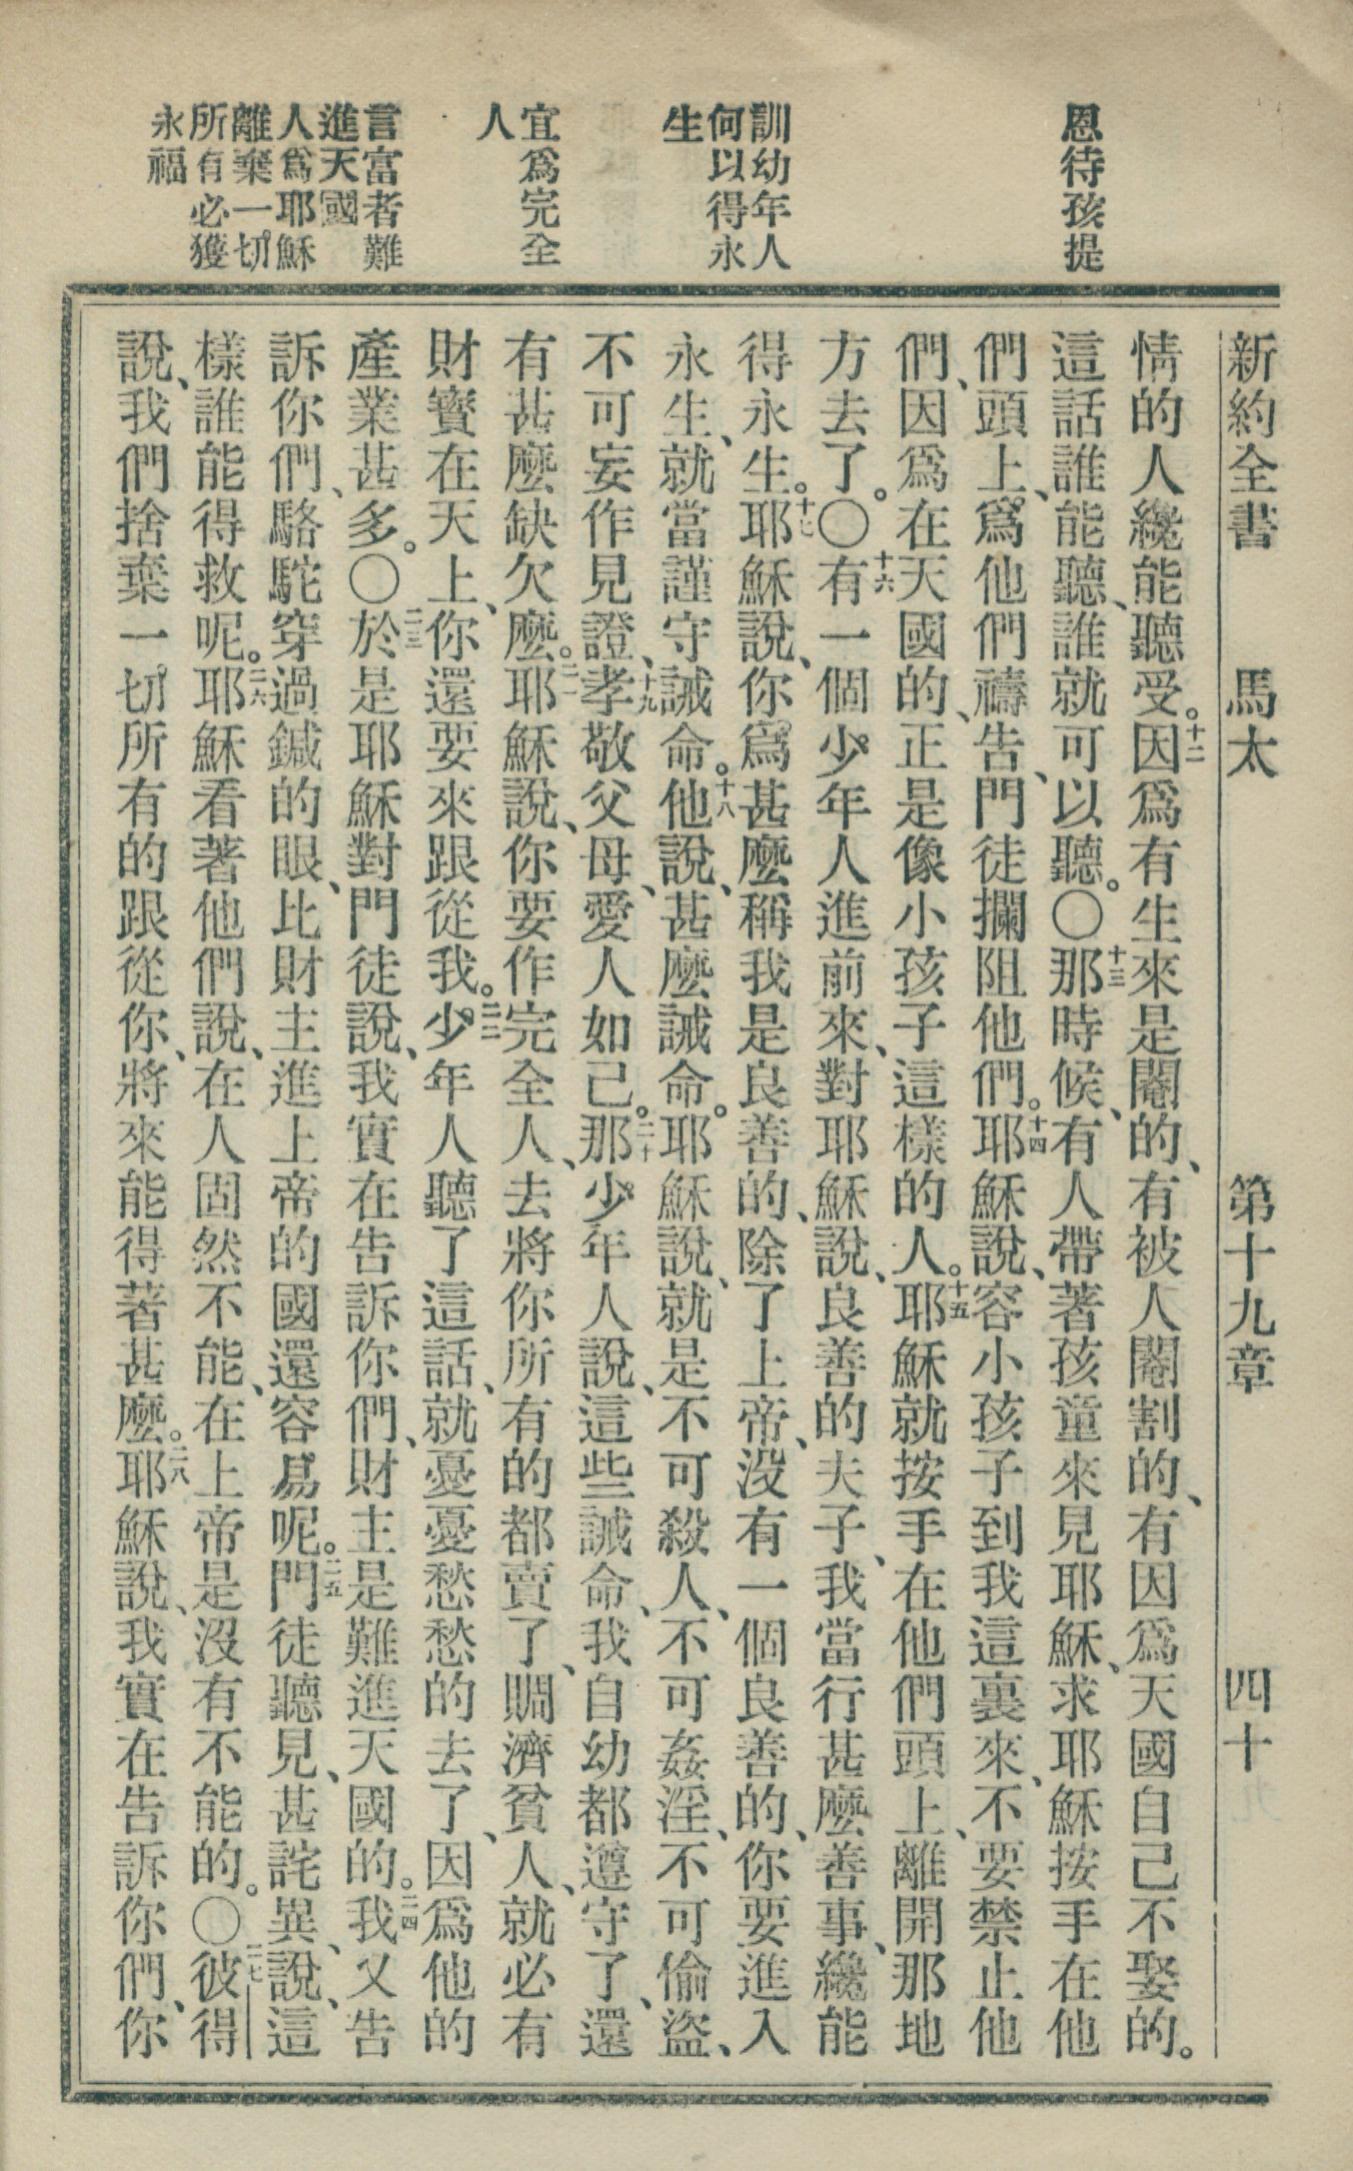 恩待孩提
訓幼年人
何以得永
生
宜爲完全
人
言富者難
進天國
人爲耶穌
離棄一切
所有必獲
永福
新約全書 馬太 第十九章 四十
情的人纔能聽受。十二因爲有生來是閹的、有被人閹割的、有因爲天國自己不娶的。
這話誰能聽、誰就可以聽。〇十三那時候、有人帶著孩童來見耶穌、求耶穌按手在他
們頭上、爲他們禱告、門徒攔阻他們。十四耶穌說、容小孩子到我這裏來、不要禁止他
們、因爲在天國的、正是像小孩子這樣的人。十五耶穌就按手在他們頭上、離開那地
方去了。〇十六有一個少年人進前來、對耶穌說、良善的夫子、我當行甚麼善事、纔能
得永生。十七耶穌說、你爲甚麼稱我是良善的、除了上帝、沒有一個良善的、你要進入
永生、就當謹守誡命。十八他說、甚麼誡命。耶穌說、就是不可殺人、不可姦淫、不可偷盜、
不可妄作見證、十九孝敬父母、愛人如己。二十那少年人說、這些誡命、我自幼都遵守了、還
有甚麼缺欠麼。二一耶穌說、你要作完全人、去將你所有的都賣了、賙濟貧人、就必有
財寶在天上、你還要來跟從我。二二少年人聽了這話、就憂憂愁愁的去了、因爲他的
產業甚多。〇二三於是耶穌對門徒說、我實在告訴你們、財主是難進天國的。二四我又告
訴你們、駱駝穿過鍼的眼、比財主進上帝的國還容易呢。二五門徒聽見、甚詫異、說、這
樣誰能得救呢。二六耶穌看著他們說、在人固然不能、在上帝是沒有不能的。〇二七彼得
說、我們捨棄一切所有的跟從你、將來能得著甚麼。二八耶穌說、我實在告訴你們、你